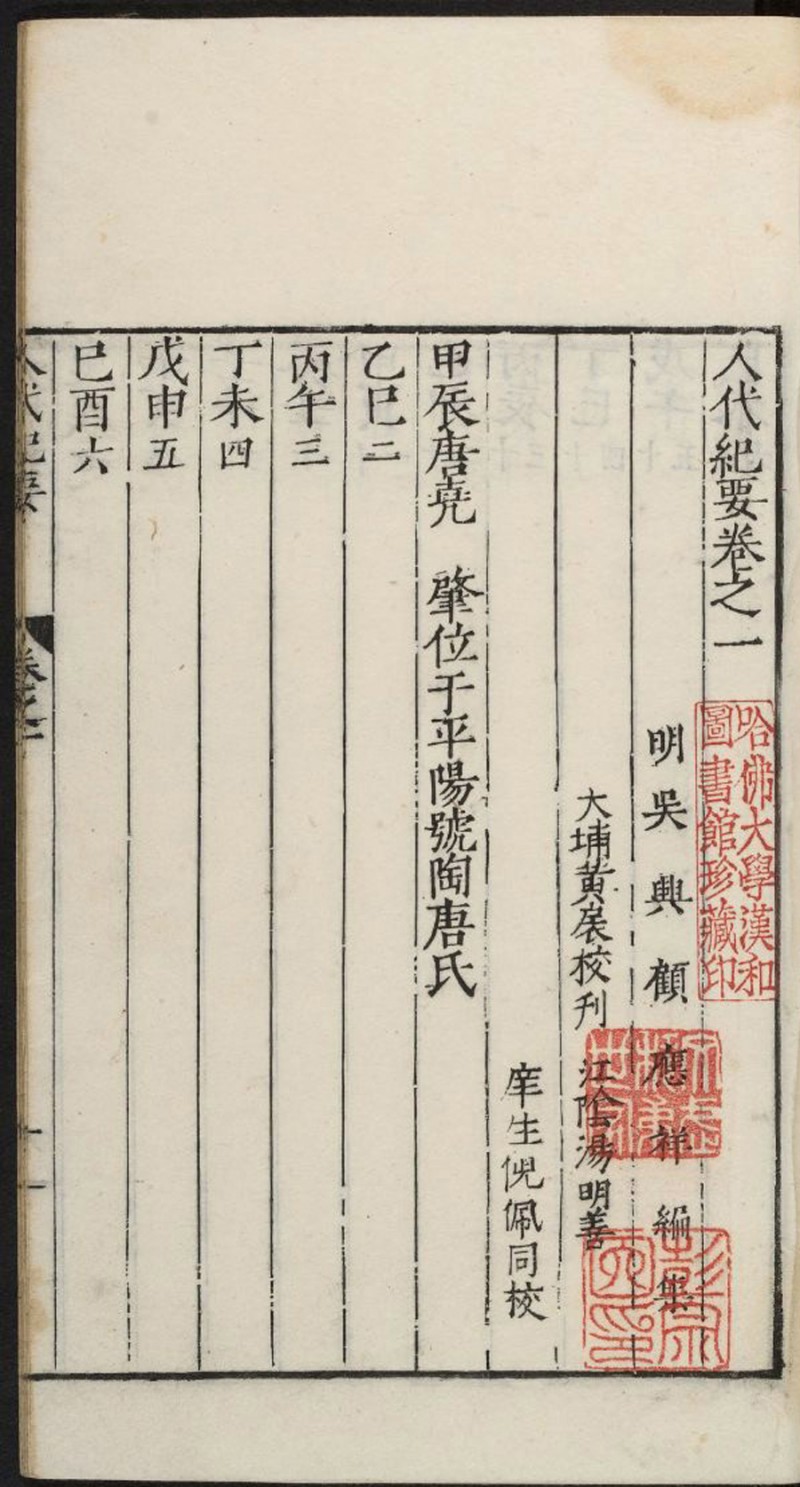 人代紀要卷之一
明吳興顧應祥編集
大埔黃扆校刋 江陰湯明善
庠生倪佩同校
甲辰唐堯 肇位于平陽號陶唐氏
乙巳二
丙午三
丁未四
戊申五
巳酉六
人代紀要
卷之一
一
哈佛大學漢和
圖書館珍藏印